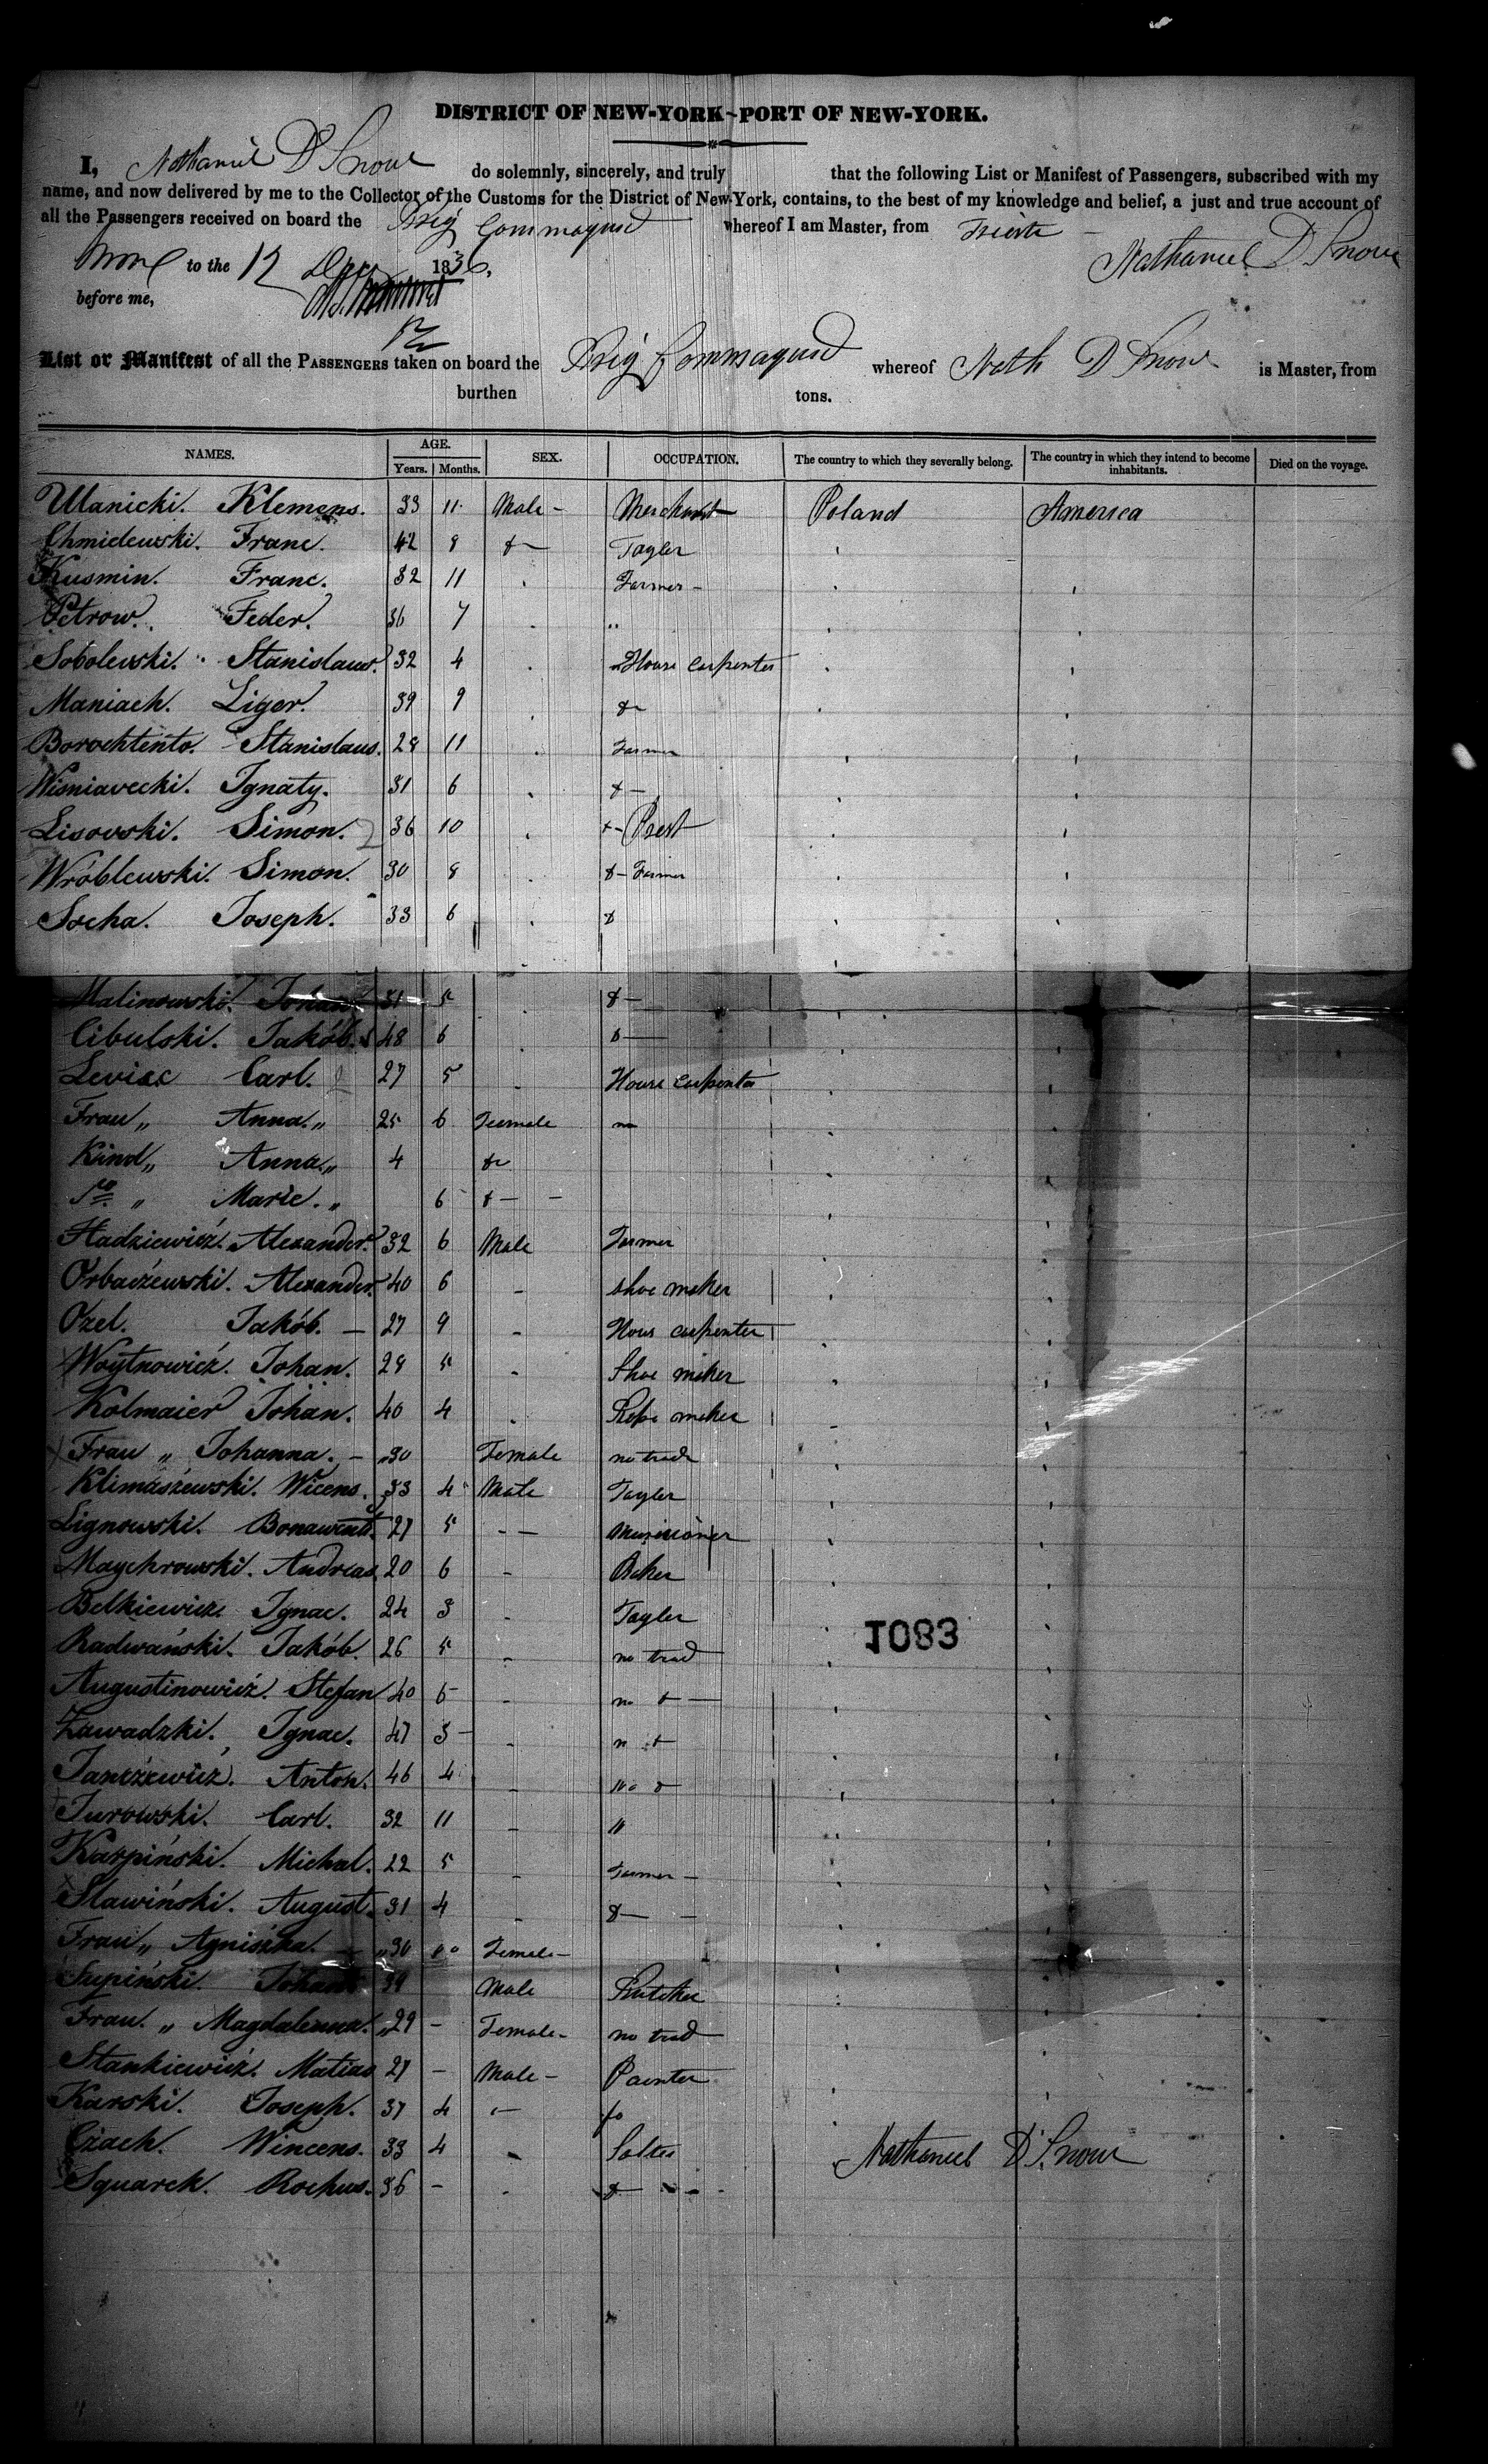 DISTRICT OF NEW-YORK-PORT OF NEW-YORK.
I, Nathaniel D Snow do solemnly, sincerely, and truly that the following List or Manifest of Passengers, subscribed with my
name, and now delivered by me to the Collector of the Customs for the District of New-York, contains, to the best of my knowledge and belief, a just and true account of
all the Passengers received on board the Brig Commaquid whereof I am Master, from Trieste
to the 12 1836. Nathaniel D Snow
before me,
12
List or Manifest of all the PASSENGERS taken on board the Brig Commaquid whereof Nath D Snow is Master, from
burthen tons.
NAMES. AGE. Years. Months. SEX. OCCUPATION. The country to which they severally belong. The country in which they intend to become inhabitants. Died on the voyage.
Ulanicki. Klemens. 33 11 Male - Merchant Poland America
Chmielewski. Franc. 42 8 Tayler
Kusmin. Franc. 32 11 Farmer -
Petrow. Feder. 36 7 "
Sobolewski. Stanislaus. 32 4 House carpenter
Maniach. Liger. 39 9
Borochtento. Stanislaus. 28 11 Farmer
Wisniavecki. Ignaty. 31 6
Lisovski. Simon. 36 10 Prest
Wróblewski. Simon. 30 8 Farmer
Socha. Joseph. 33 6
Malinowski. Johan. 31 5
Cibulski. Jakób. 48 6
Leviac Carl. 27 5 House carpenter
Frau " Anna. " 25 6 Feemale no
Kind " Anna. " 4
" Marie. " 6
Hadziewicź. Alexander. 32 6 Male Farmer
Orbaźewski. Alexander. 40 6 shoe maker
Ozel. Jakób. - 27 9 Hous carpenter
Woytnowicź. Johan. 28 5 Shoe maker
Kolmaier Johan. 40 4 Rope maker
Frau " Johanna. - 30 Female no trade
Klimaszewski. Wicens. 33 4 Male Tayler
Lignowski. Bonawent. 27 5
Maychrowski. Andreas. 20 6 Baker
Belkiewicz. Ignac. 24 3 Tayler
Radwański. Jakób. 26 5 no trad
1083
Augustinowicź. Stefan 40 6 no
Zawadzki. Ignac. 47 3
Janczewicź. Anton. 46 4 no
Jurowski. Carl. 32 11 "
Karpiński. Michal. 22 5 Farmer -
Slawiński. August. 31 4
Frau " Agniszka. 30 Female -
Supiński. Johan 39 Male Butcher
Frau. " Magdalenna. 29 - Female - no trad
Stankiewicź. Matias 27 - Male - Painter
Karski. Joseph. 37 4
Cźach. Wincens. 33 4 Nathaniel D. Snow
Squarek. Rochus. 36 -